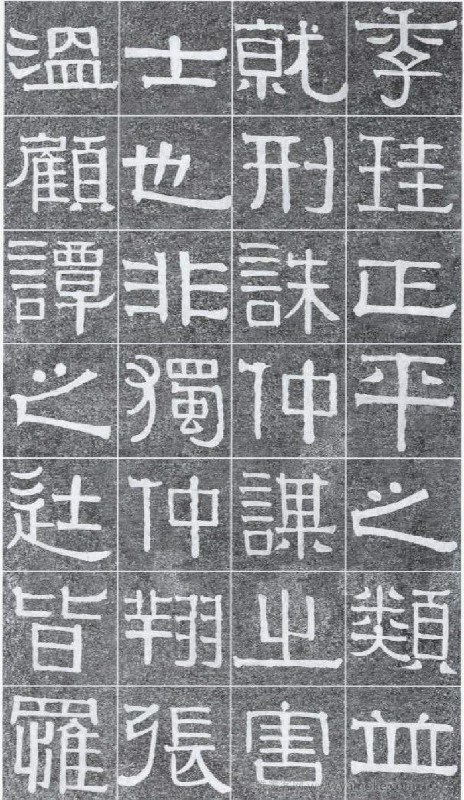 季珪正平之類並
就刑誅仲謀之害
士也非獨仲翔張
溫顧譚之徒皆罹